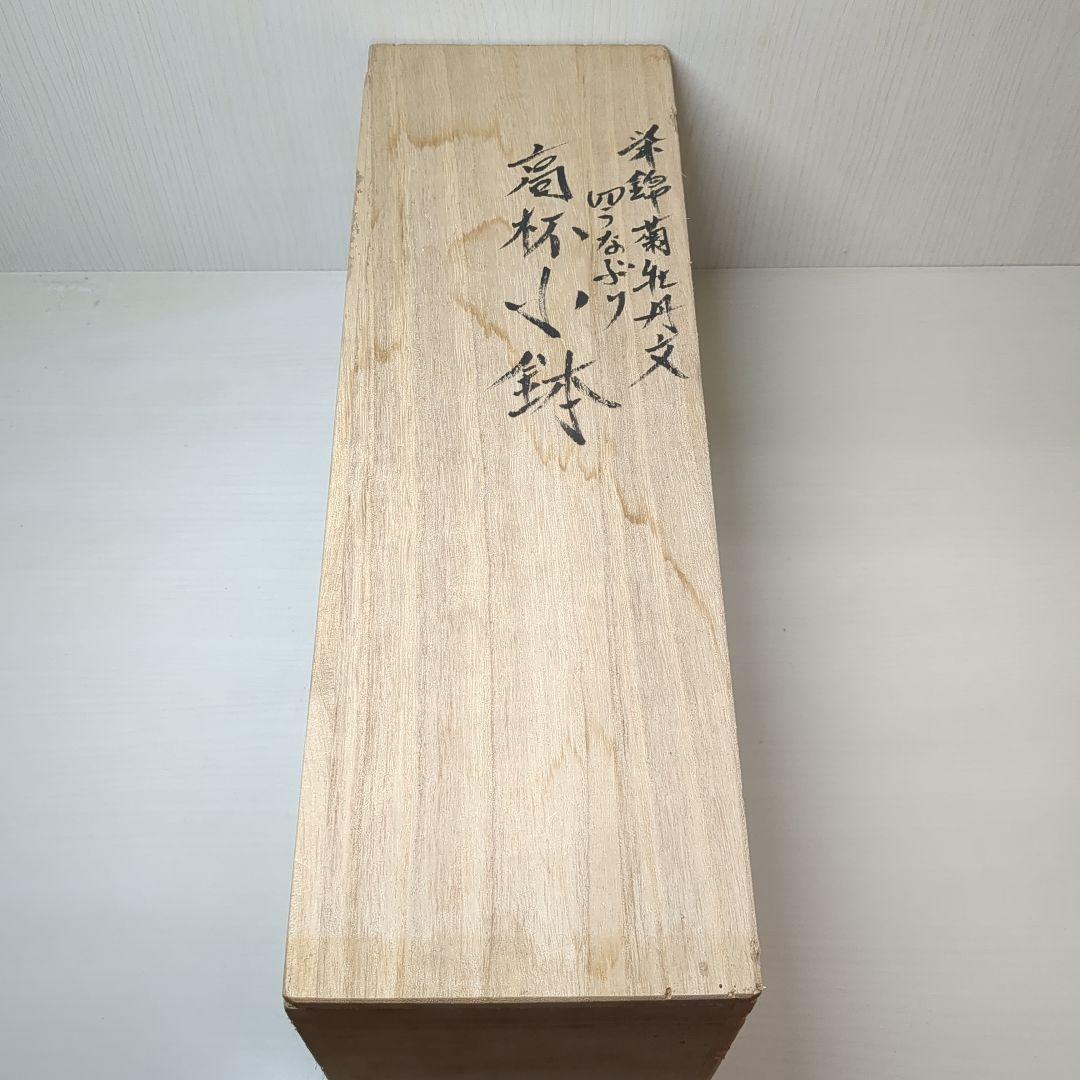 染錦菊牡丹文
四つなぶり
高杯小鉢